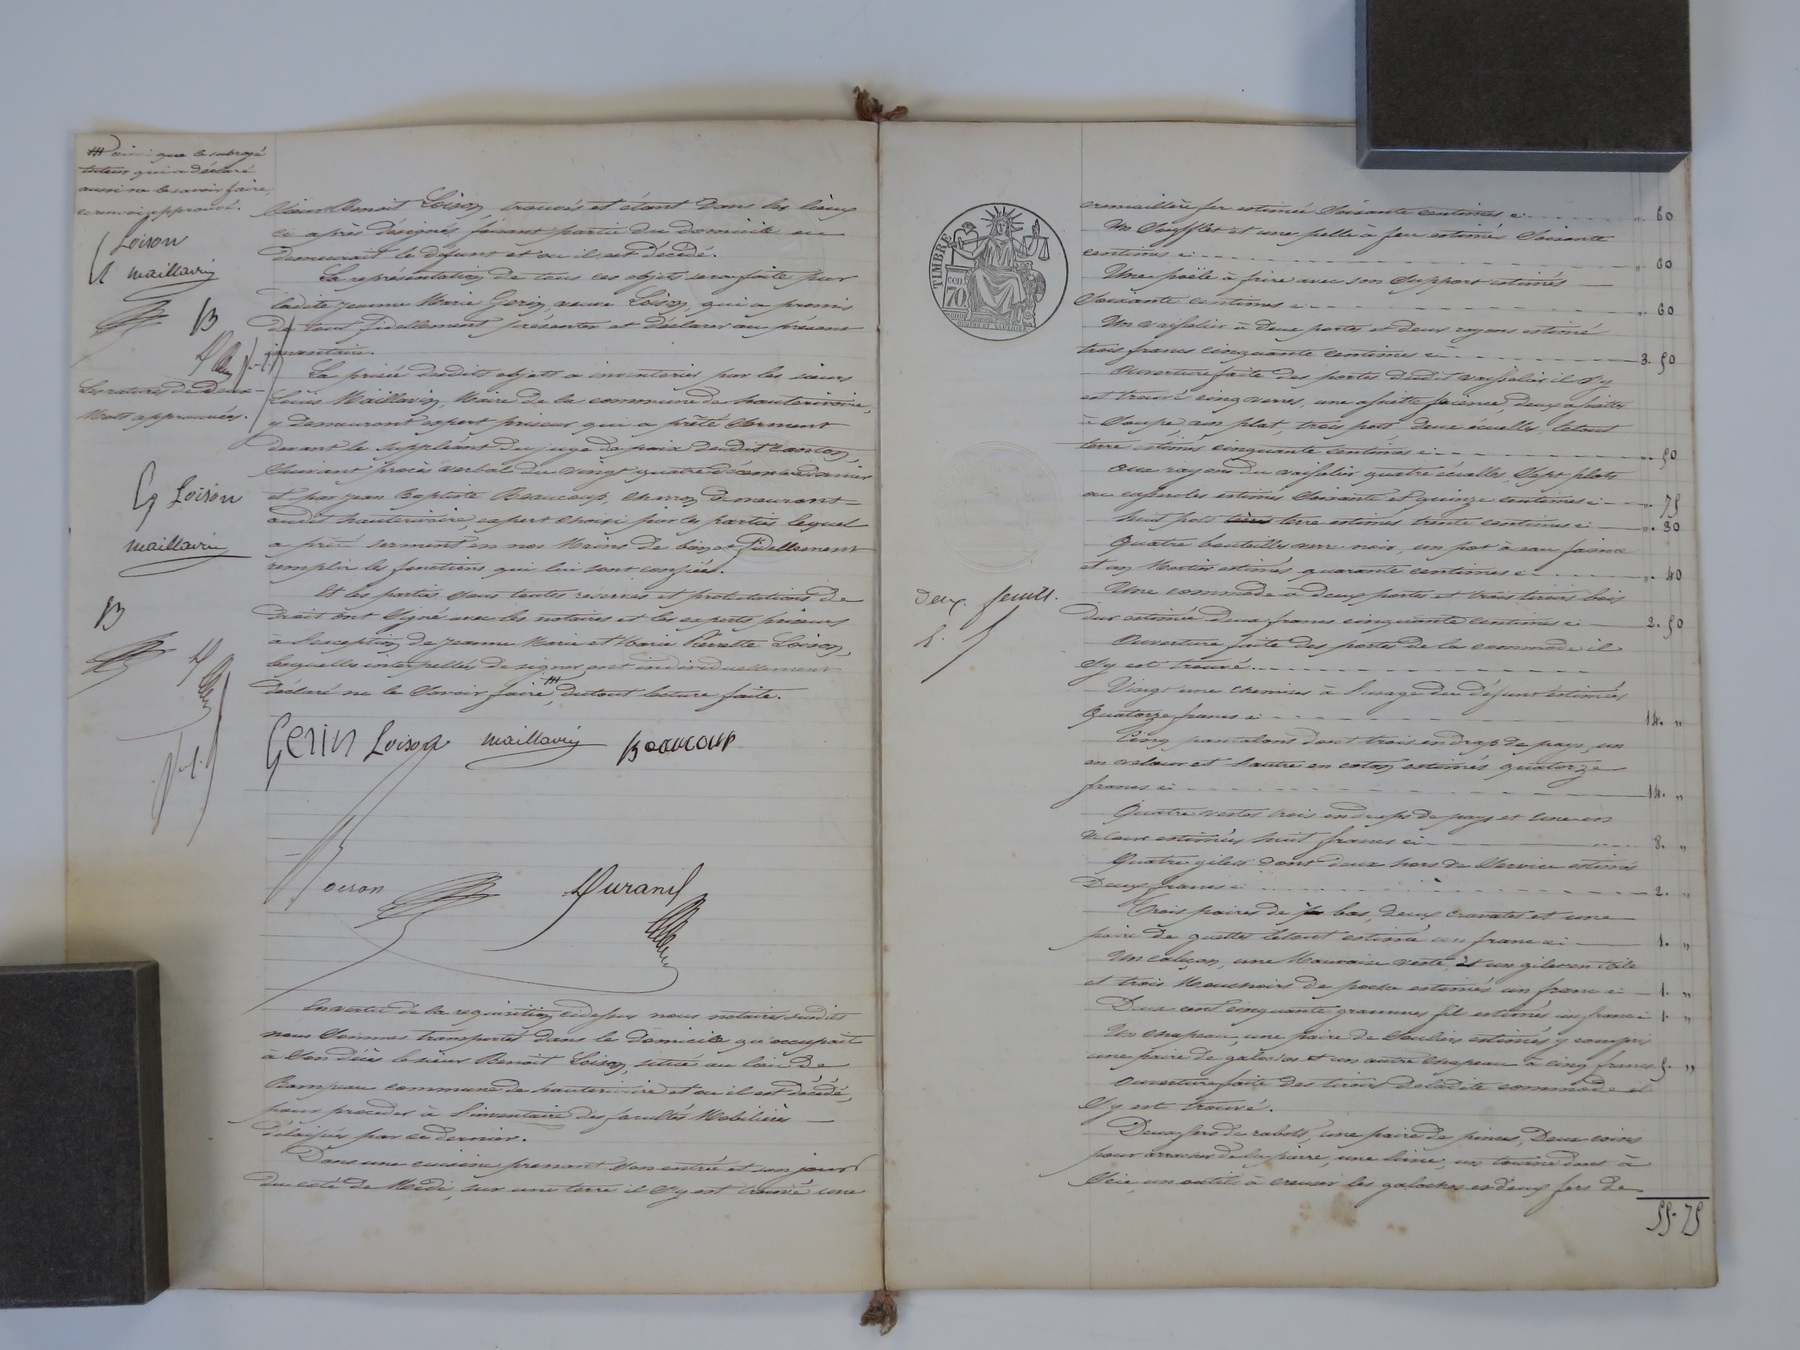 ainsi que le subrogé
tuteur qui a déclaré
aussi ne le savoir faire,
ce renvoi approuvé.
Loison
Maillavin
B
Les ratures de deux
Mots approuvées.
G Loison
Maillavin
B
Sieur Benoit Loison, trouvés et étant dans les lieux
ci après désignés faisant partie du domicile ou
demeurait le défunt et ou il est décédé.
La représentation de tous ces objets sera faite par
ladite Jeanne Marie Gerin veuve Loison, qui a promis
de tout fidellement présenter et déclarer au présent
inventaire.
La prisée desdits objets a inventorié par les sieurs
Louis Maillavin, Maire de la commune de hauterivoire,
y demeurant expert priseur qui a prêté Serment
devant le Suppléant du juge de paix dudit canton,
Suivant procès verbal du vingt quatre décembre dernier
et par Jean Baptiste Beaucoup, charron demeurant
audit hauterivoire, expert choisi par les parties lequel
a prêté serment en nos Mains de bien et fidellement
remplir les fonctions qui lui sont confiées.
Et les parties sous toutes réserves et protestations de
droit ont Signé avec les notaires et les experts priseurs
à l'exception de Jeanne Marie et Marie Pierrette Loison,
lesquelles interpellées de signer ont individuellement
déclaré ne le Savoir faire, dutout lecture faite.
Gerin Loison Maillavin Beaucoup
oison Durand
En vertu de la réquisition cidessus nous notaires susdits
nous Sommes transportés dans le domicile qu'occupait
à Son décès le sieur Benoit Loison, situé au lieu de
Rampeau commune de hauterivoire et ou il est décédé,
pour procéder à l'inventaire des facultés Mobilières
délaissés par ce dernier.
Dans une cuisine prenant Son entrée et son jour
du coté de Midi, sur une terre il S'y est trouvé une
TIMBRE
70
Deux feuill.
cremaillère fer estimée Soixante centimes ci ,, 60
Un Soufflet et une pelle à feu estimés Soixante
centimes ci ,, 60
Une poële à frire avec son Support estimés
Soixante centimes ci ,, 60
Un vaisselier à deux portes et deux rayons estimé
trois francs cinquante centimes ci 3. 50
Ouverture faite des portes dudit vaisselier il S'y
est trouvé cinq verres, une assiette faïence, deux assiettes
à Soupe, un plat, trois pots deux écuelles letout
terre estimés cinquante centimes ci ,, 50
Aux rayons du vaisselier quatre écuelles, Sept plats
ou casseroles estimés Soixante et quinze centimes ci ,, 75
huit pots terre estimés trente centimes ci ,, 30
Quatre bouteilles verre noir, un pot à eau faïence
et un Mortier estimés quarante centimes ci ,, 40
Une commode à deux portes et trois tiroirs bois
dur estimée deux francs cinquante centimes ci 2. 50
Ouverture faite des portes de la commode il
S'y est trouvé
Vingt une chemises à l'usage du défunt estimées
Quatorze francs ci 14. ,,
Cinq pantalons dont trois en drap de pays, un
en velour et l'autre en coton estimés quatorze
francs ci 14. ,,
Quatre vestes trois en drap de pays et une en
velour estimées huit francs ci 8. ,,
Quatre gilets dont deux hors de Service estimés
Deux francs ci 2. ,,
Trois paires de bas, deux cravates et une
paire de guettes letout estimé un franc ci 1. ,,
Un caleçon, une Mauvaise veste, et un gilet en toile
et trois Mouchoirs de poche estimés un franc ci 1. ,,
Deux cent cinquante grammes fil estimés un franc ci 1. ,,
Un chapeau, une paire de Souliers estimés y compris
une paire de galoches et un autre chapeau à cinq francs 5. ,,
Ouverture faite des tiroirs deladite commode il
S'y est trouvé.
Deux fers de rabots, une paire de pinces, Deux coins
pour arracher dela pierre, une lime, un tourne dent à
Scie, un outil à creuser les galoches et deux fers de
55. 75